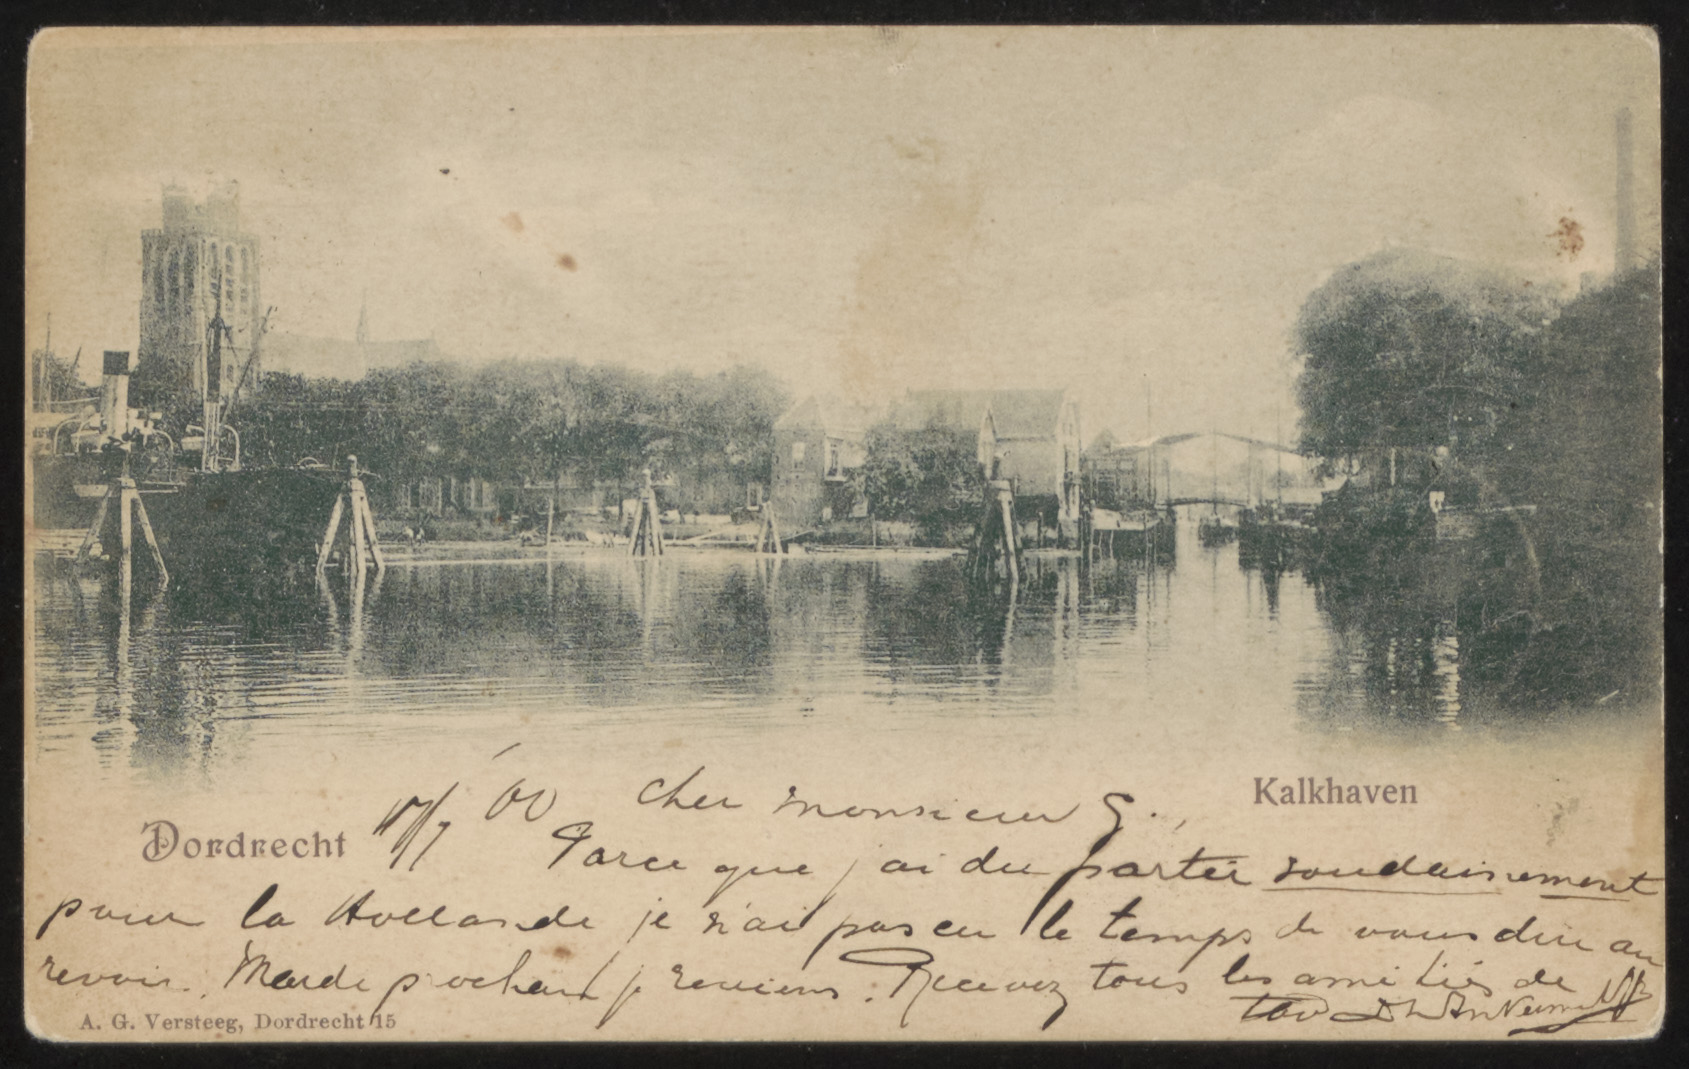 Kalkhaven
Dordrecht
17/7 00 cher monsieur G.,
Parce que j'ai du partir soudainement
pour la Hollande je n'ai pas eu le temps de vous dire au
revoir. Mardi prochain je reviens. Recevez tous les amitiés de
A. G. Versteeg, Dordrecht 15